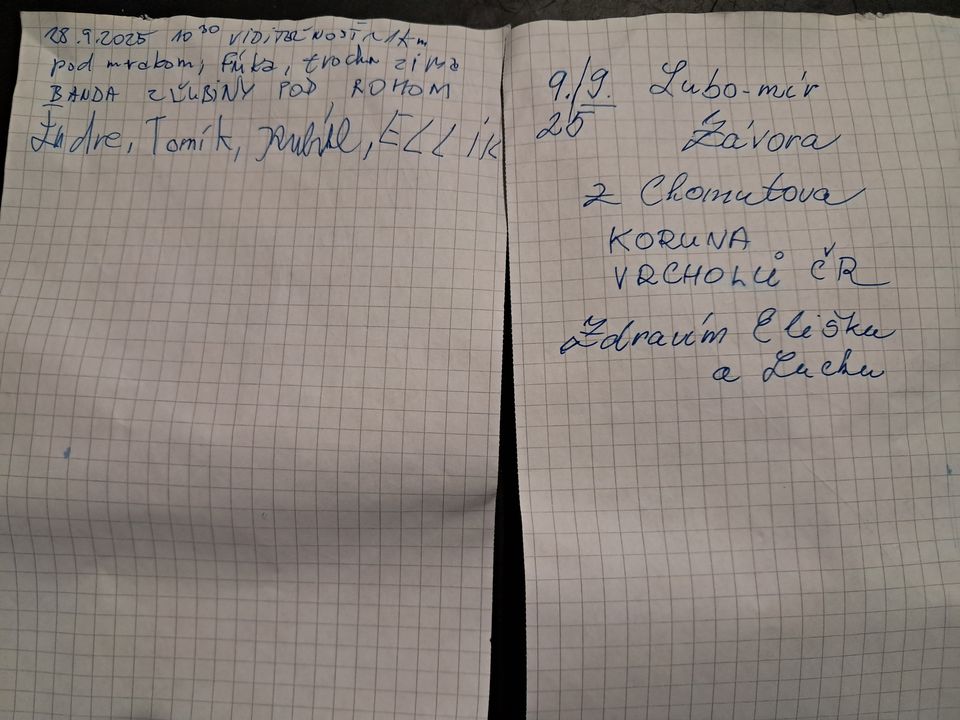 28.9.2025 10³⁰ VIDITEĽNOSŤ 1km
pod mrakom, fúka, trochu zima
BANDA Z ĽUBINY POD ROHOM
Tomík, ELLIK
9./9. Lubo-mír
25 Závora
z Chomutova
KORUNA
VRCHOLŮ ČR
Zdravím Elišku
a Lucku